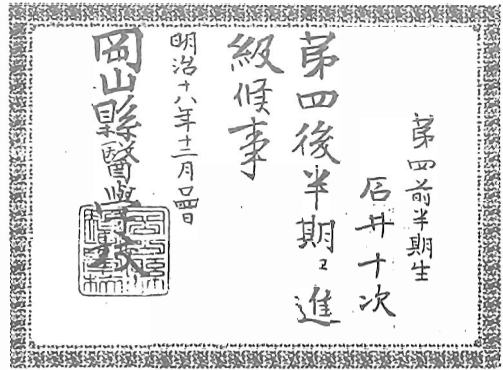 第四前半期生
石井十次
第四後半期ニ進
級候事
明治十八年十二月廿四日
岡山縣醫學校